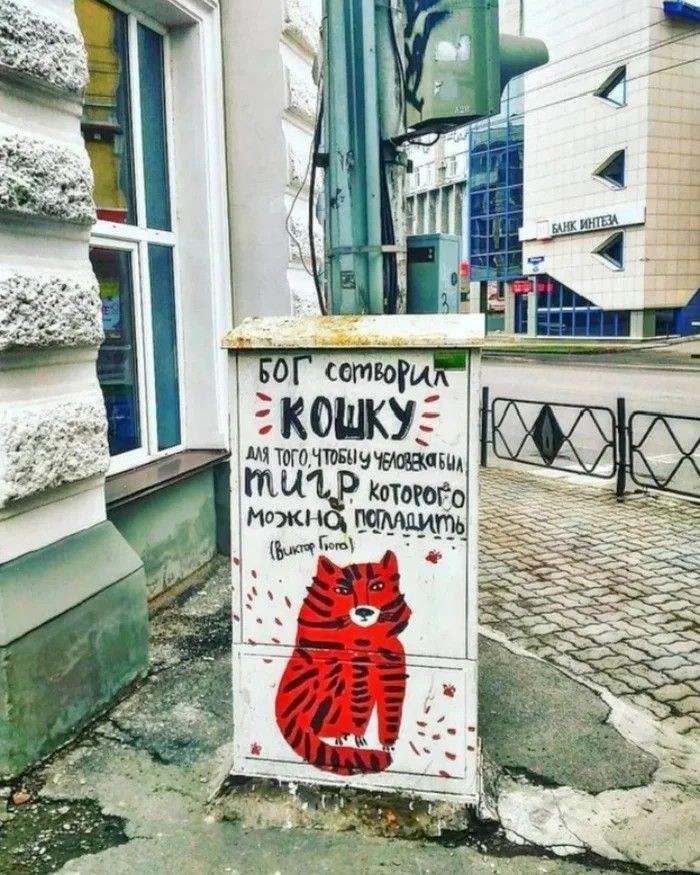 БОГ сотворил
КОШКУ
для того, чтобы у человека был
тигр которого
можно погладить
(Виктор Гюго)
БАНК ИНТЕЗА